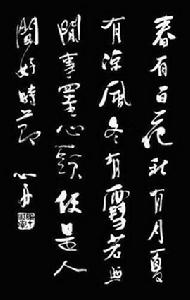 春有百花秋有月夏
有涼風冬有雪若無
閒事罣心頭便是人
間好時節